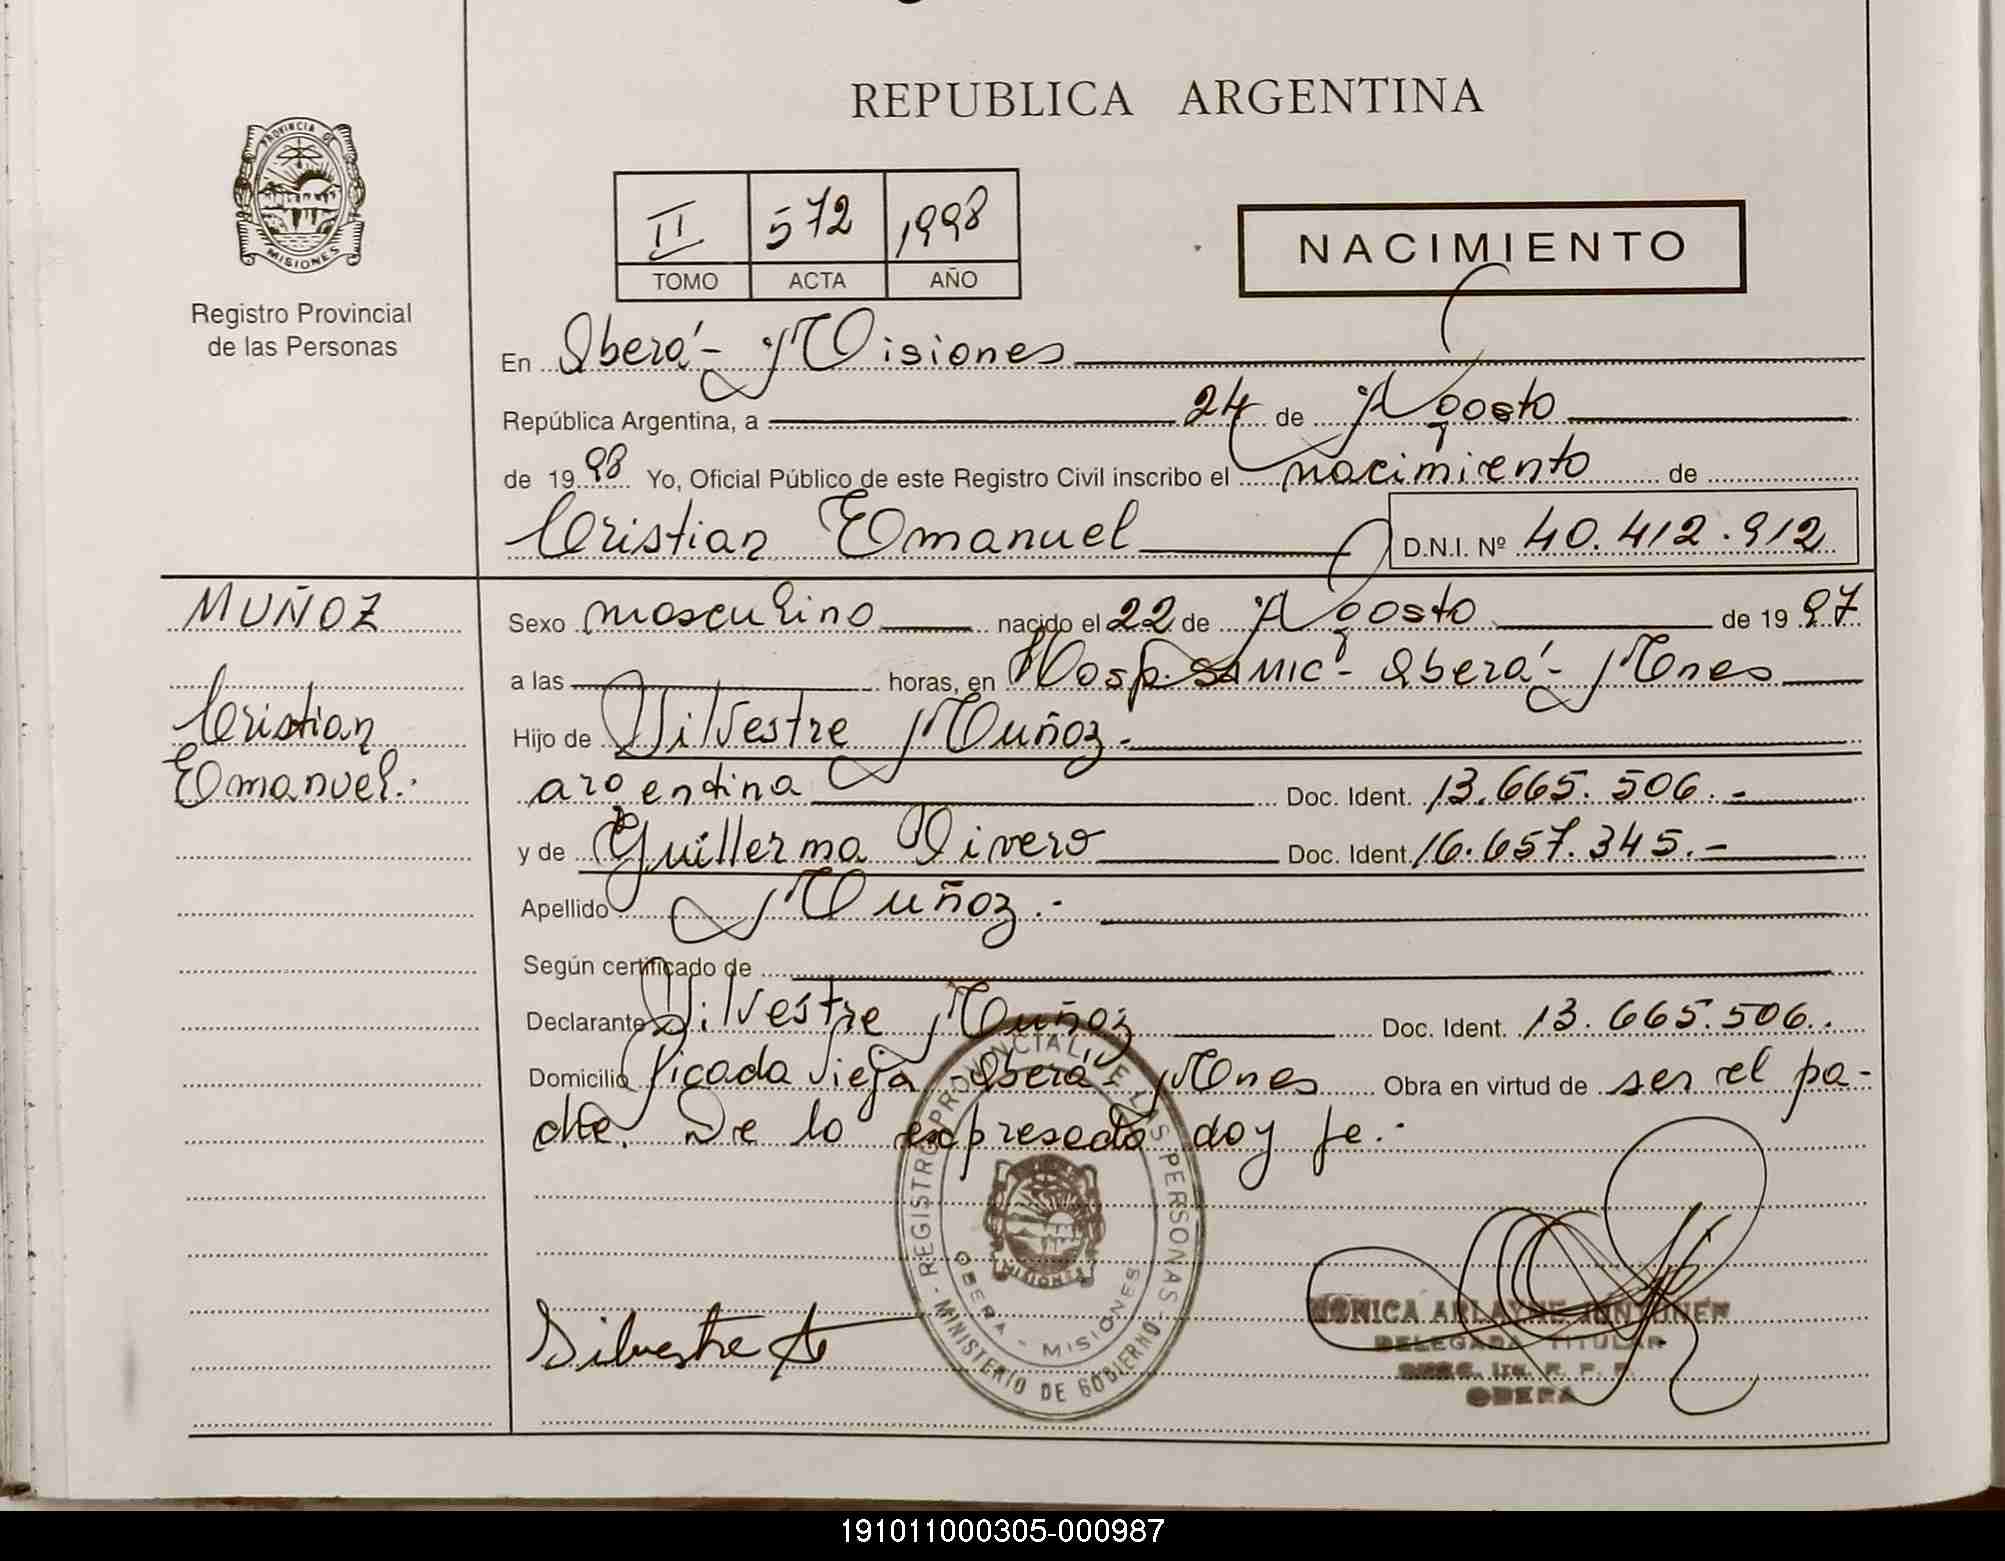 REPUBLICA ARGENTINA
PROVINCIA DE
MISIONES
Registro Provincial
de las Personas
II 572 1998
TOMO ACTA AÑO
NACIMIENTO
En Oberá - Misiones
República Argentina, a 24 de Agosto
de 1998 Yo, Oficial Público de este Registro Civil inscribo el nacimiento de
Cristian Emanuel D.N.I. Nº 40.412.912
MUÑOZ
Cristian
Emanuel.
Sexo masculino nacido el 22 de Agosto de 1997
a las horas, en Hosp. SAMIC - Oberá - Mnes
Hijo de Silvestre Muñoz.-
argentina Doc. Ident. 13.665.506.-
y de Guillerma Rivero Doc. Ident. 16.657.345.-
Apellido Muñoz.-
Según certificado de
Declarante Silvestre Muñoz Doc. Ident. 13.665.506.
Domicilio Picada Vieja - Oberá - Mnes Obra en virtud de ser el pa-
dre. De lo expresado doy fe.-
REGISTRO PROVINCIAL DE LAS PERSONAS
- MINISTERIO DE GOBIERNO -
MISIONES
OBERA - MISIONES
Silvestre
MONICA ARLAYNE
DELEGADA TITULAR
OBERA
191011000305-000987